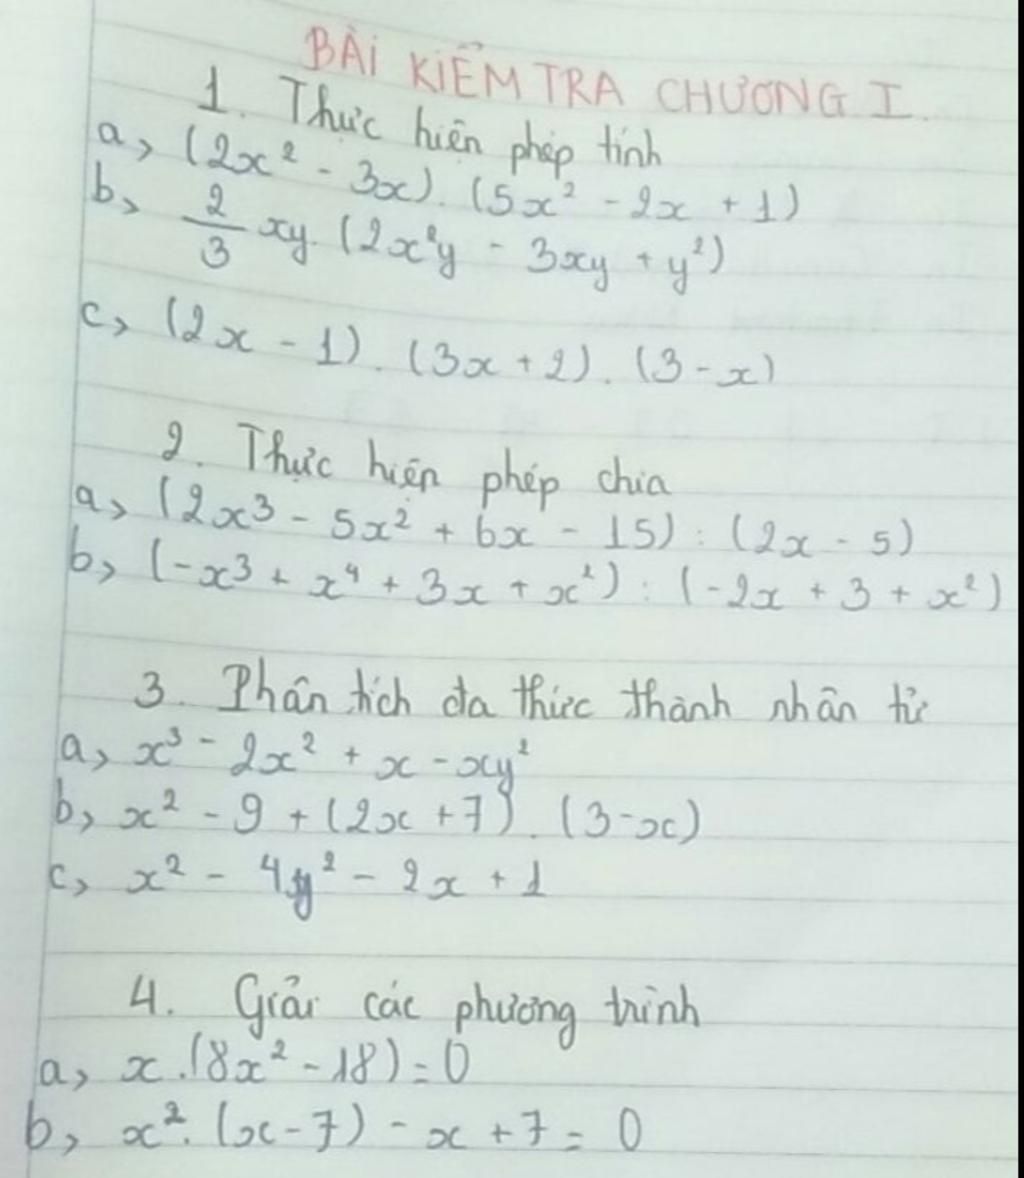 BÀI KIỂM TRA CHƯƠNG I.
1. Thực hiện phép tính
a, (2x² - 3x). (5x² - 2x + 1)
b, 2/3 xy. (2x²y - 3xy + y²)
c, (2x - 1). (3x + 2). (3 - x)
2. Thực hiện phép chia
a, (2x³ - 5x² + 6x - 15) : (2x - 5)
b, (-x³ + x⁴ + 3x + x²) : (-2x + 3 + x²)
3. Phân tích đa thức thành nhân tử
a, x³ - 2x² + x - xy²
b, x² - 9 + (2x + 7). (3 - x)
c, x² - 4y² - 2x + 1
4. Giải các phương trình
a, x.(8x² - 18) = 0
b, x². (x - 7) - x + 7 = 0